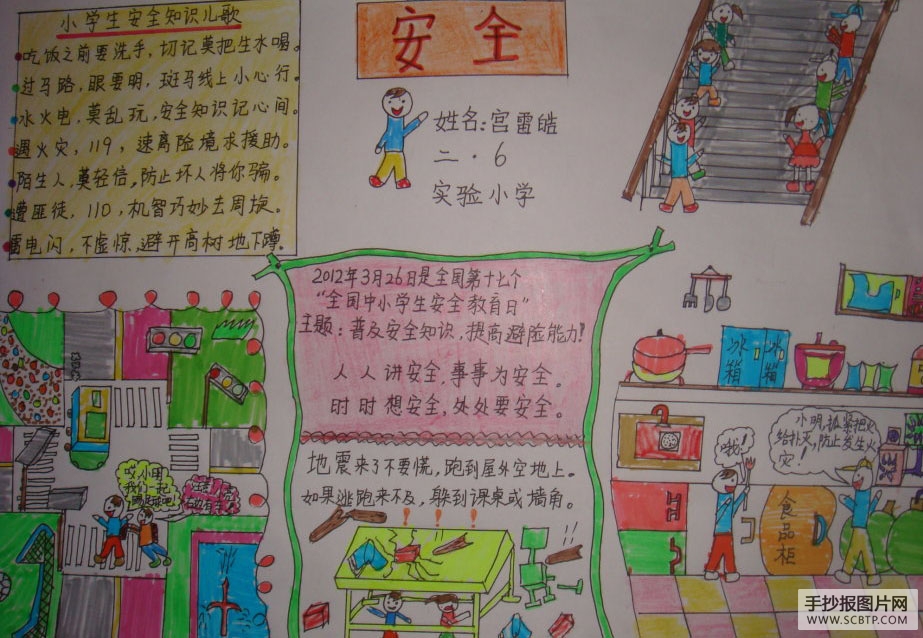 小学生安全知识儿歌
吃饭之前要洗手，切记莫把生水喝。
过马路，眼要明，斑马线上小心行。
水火电，莫乱玩，安全知识记心间。
遇火灾，119，速离险境求援助。
陌生人，莫轻信，防止坏人将你骗。
遭匪徒，110，机智巧妙去周旋。
雷电闪，不虚惊，避开高树地下蹲。
安全
姓名：宫雷皓
二·6
实验小学
2012年3月26日是全国第十七个
“全国中小学生安全教育日”
主题：普及安全知识，提高避险能力！
人人讲安全，事事为安全。
时时想安全，处处要安全。
地震来了不要慌，跑到屋外空地上。
如果逃跑来不及，躲到课桌或墙角。
冰箱
冰箱
哦！
小明，抓紧把火
给扑灭，防止发生火
灾！
食品柜
手抄报图片网
WWW.SCBTP.COM